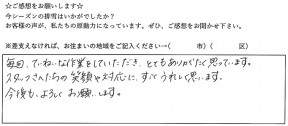 ☆ご感想をお願いします☆
今シーズンの排雪はいかがでしたか？
お客様の声が、私たちの原動力になっています。ぜひ、ご感想をお聞かせ下さい。
※差支えなければ、お住まいの地域をご記入ください→( 市)( 区)
毎回、ていねいな作業をしていただき、とてもありがたく思っています。
スタッフさんたちの笑顔や対応に、すごくうれしく思います。
今後も、よろしくお願いします。